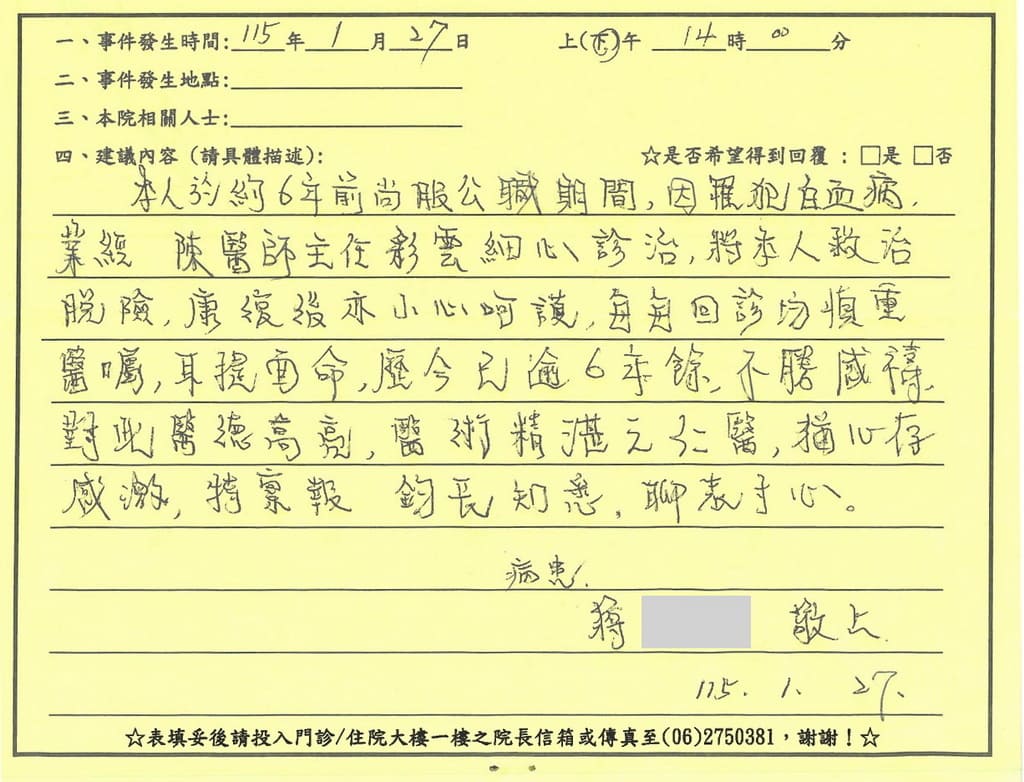 一、事件發生時間: 115 年 1 月 27 日 上(下)午 14 時 00 分
二、事件發生地點:
三、本院相關人士:
四、建議內容 (請具體描述): ☆是否希望得到回覆 : □是 □否
本人於約6年前尚服公職期間,因罹犯白血病,
業經 陳醫師主任彩雲細心診治,將本人救治
脫險,康復後亦小心呵護,每每回診均慎重
醫囑,耳提面命,歷今已逾6年餘,不勝感禱,
對此醫德高亮,醫術精湛之仁醫,猶心存
感激,特稟報 鈞長知悉,聊表予心。
病患,
蔣 敬上
115. 1. 27.
☆表填妥後請投入門診/住院大樓一樓之院長信箱或傳真至(06)2750381,謝謝!☆